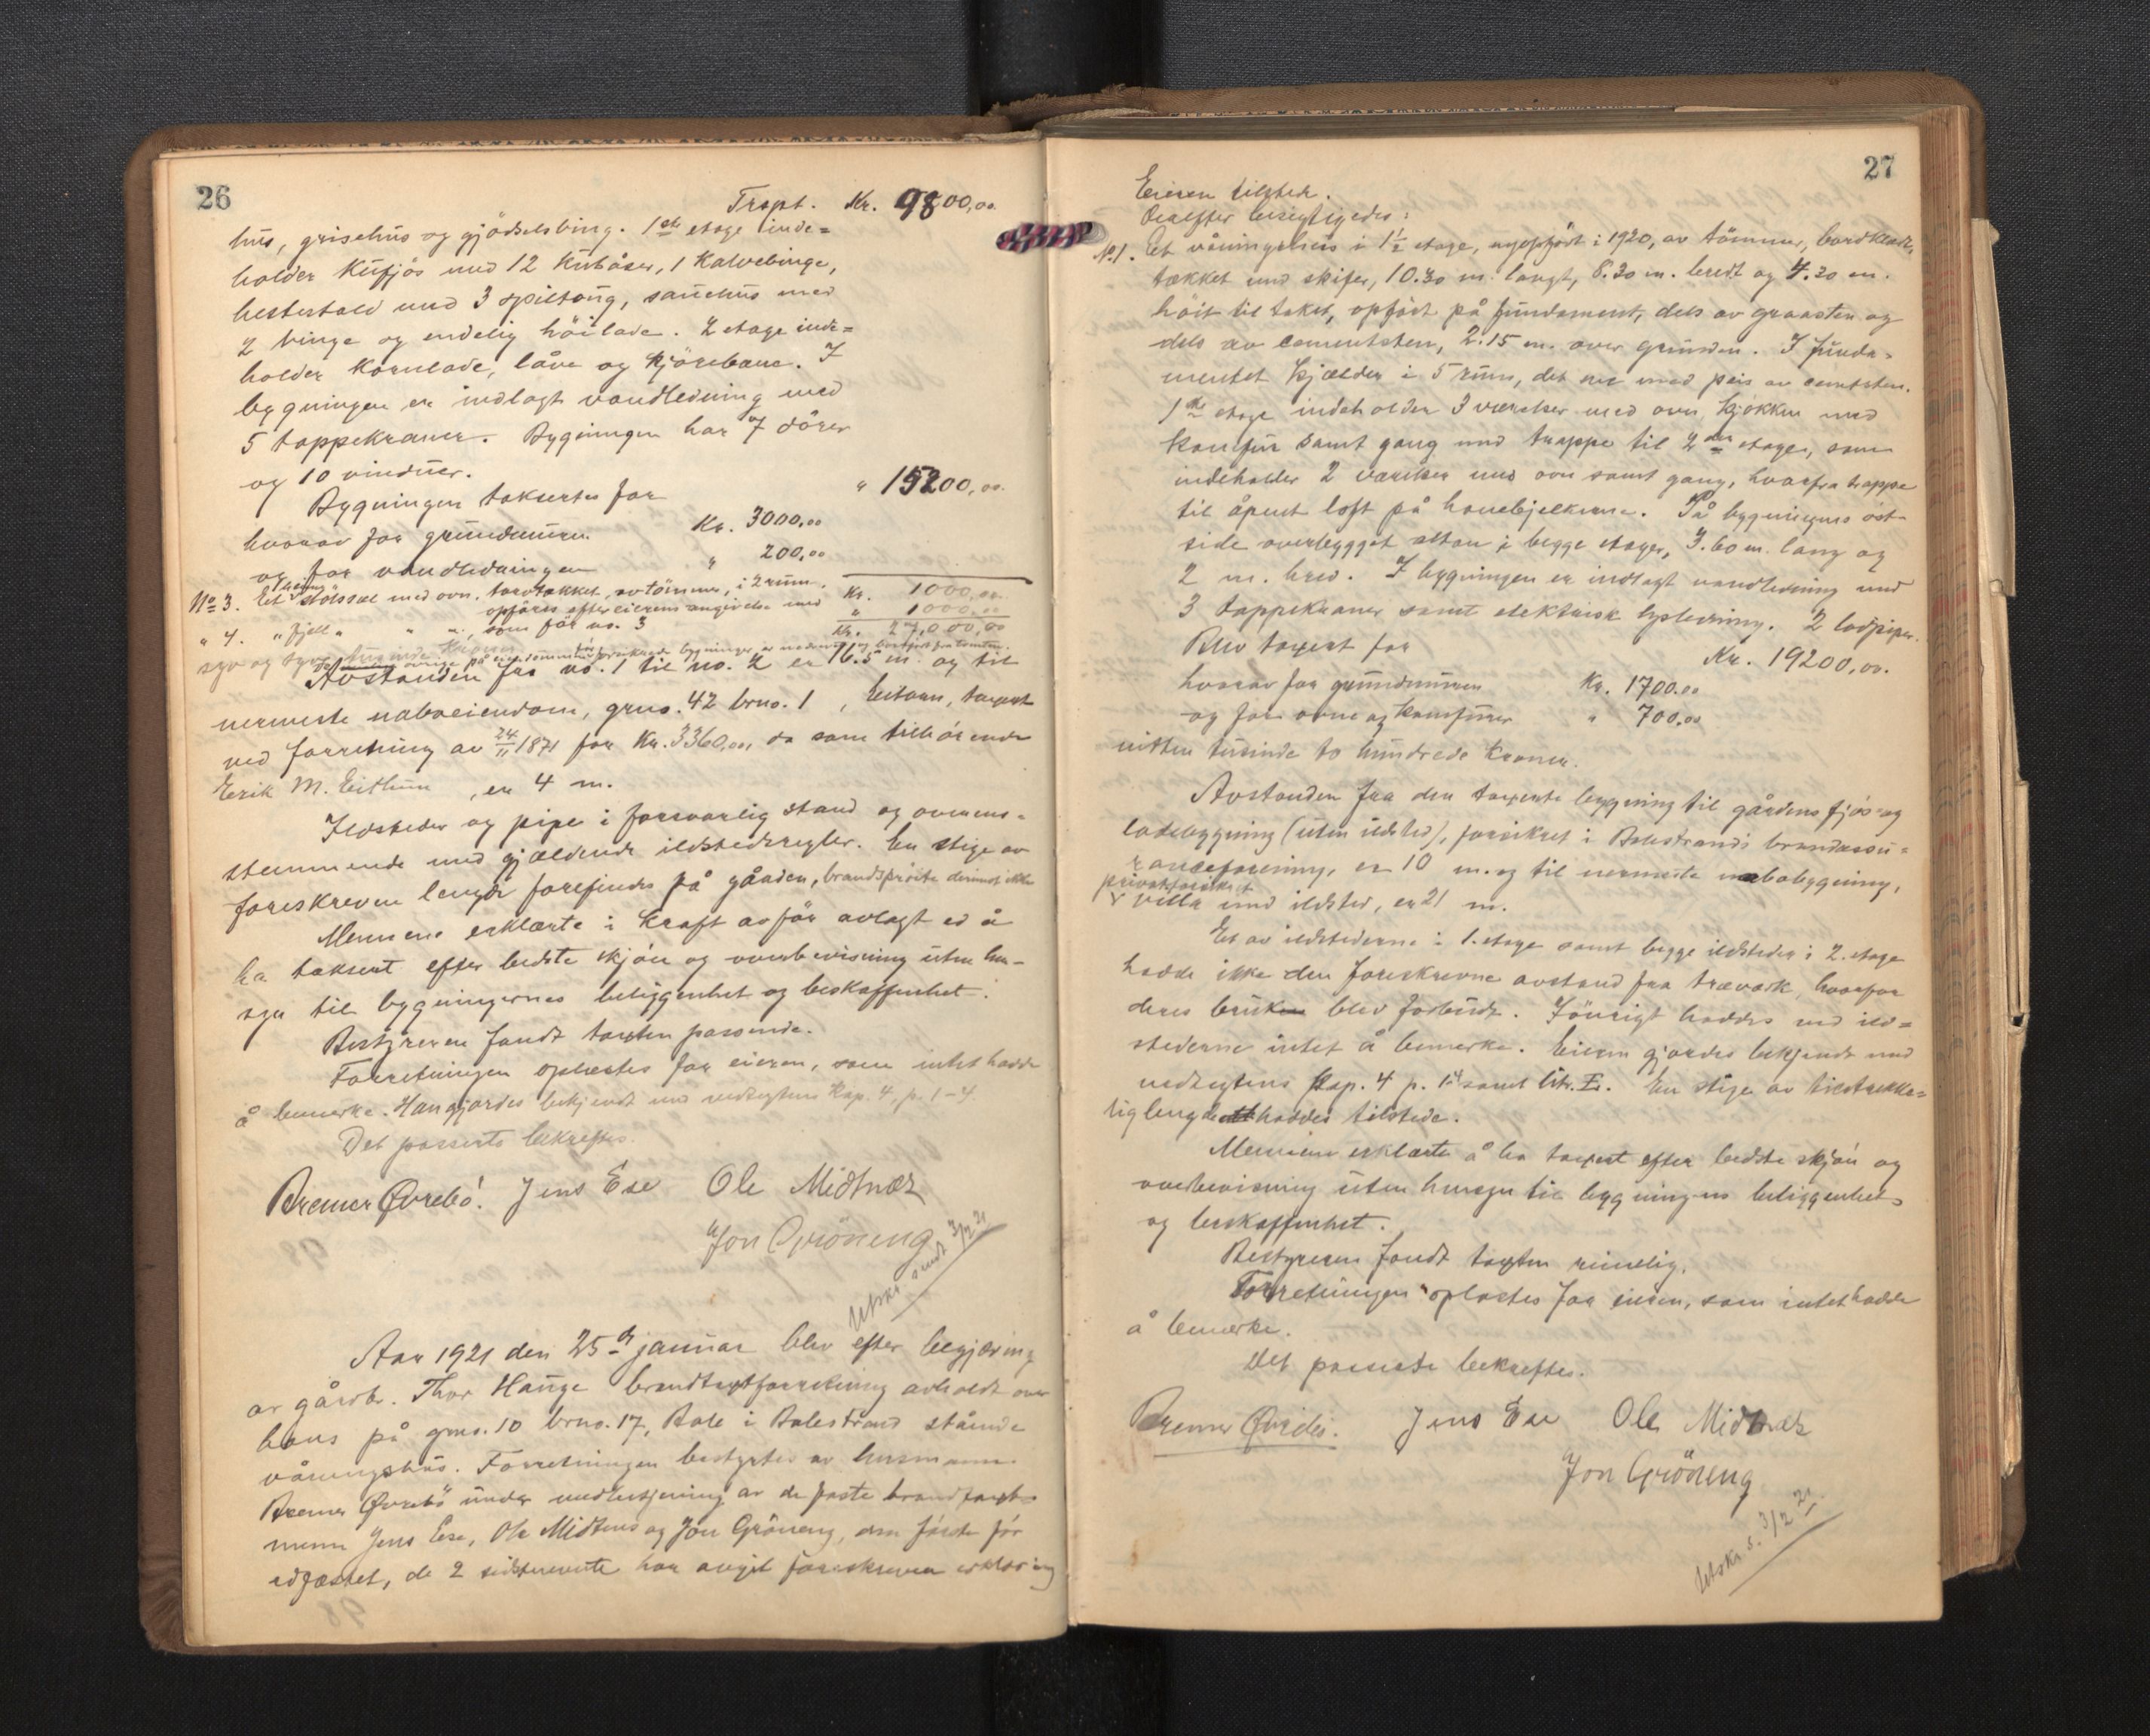 26
Trspt. Kr. 9800,00
hus, grisehus og gjödselsbing. 1ste etage inde=
holder Kufjös med 12 Kubåser, 1 Kalvebinge,
hestestald med 3 spiltoug, sauehus med
2 binge og endelig höilade. 2 etage inde=
holder Kornlade, låve og kjörebane. I
bygningen er indlagt vandledning med
5 tappekraner. Bygningen har 7 dörer
og 10 vinduer.
Bygningen takseres for " 15200,00
hvorav for grundmuren Kr. 3000,00
og for vandledningen " 200,00
No 3. Et stölssel med ovn, torvtækket, av tömmer, i 2 rum, Kr. 1000,00
opföres efter eierens angivelse med
" 4. " fjell " " " , som för no. 3 " 1000,00
Kr. 27,000,00
syv og tyve tusinde Kroner
Avstanden fra no. 1 til no. 2 er 16.5 m. og til
nermeste naboeiendom, grno. 42 brno. 1, Eitorn, taxert
ved forretning av 24/11 1871 for Kr. 3360,00, da som tilhörende
Erik M. Eithun, er 4 m.
Ildsteder og pipe i forsvarlig stand og overens=
stemmende med gjældende ildstedsregler. En stige av
foreskreven lengde forefindes på gården, brandspröite derimot ikke
Mennene erklærte i kraft av för avlagt ed å
ha taksert efter bedste skjön og overbevisning uten hen-
syn til bygningernes beliggenhet og beskaffenhet.
Bestyreren fandt taxten passende.
Forretningen oplæstes for eieren, som intet hadde
å bemerke. Han gjordes bekjendt med vedtegtens Kap. 4, p. 1-4.
Det passerte bekreftes.
Bremer Øvrebö. Jens Ese Ole Midtnæs
Jon Gröneng
Utskr. sendt 3/2 21
Aar 1921 den 25de januar blev efter begjæring
av gårdbr. Thor Hauge brandtaxtforretning avholdt over
hans på grno. 10 brno. 17, Bale i Balestrand stående
våningshus. Forretningen bestyrtes av husmann
Bremer Øvrebö under medbetjening av de faste brandtaxt-
menn Jens Ese, Ole Midtnæs og Jon Gröneng, den förste för
edfæstet, de 2 sidstnevnte har avgit foreskreven erklæring
27
Eieren tilstede.
Derefter besigtigedes:
No 1. Et våningshus i 1½ etage, nyopfört i 1920, av tömmer, bordklædt,
tækket med skifer, 10.30 m. langt, 8.20 m. bredt og 4.20 m.
höit til taket, opfört på fundament, dels av graasten og
dels av cementsten, 2.15 m. over grunden. I funda-
mentet kjælder i 5 rum, det ene med peis av cemtsten.
1ste etage indeholder 3 værelser med ovn, kjökken med
komfur samt gang med trappe til 2den etage, som
indeholder 2 værelser med ovn samt gang, hvorfra trappe
til åpent loft på hanebjelkerne. På bygningens öst-
side overbygget altan i begge etager, 3.60 m. lang og
2 m. bred. I bygningen er indlagt vandledning med
3 tappekraner samt elektrisk lysledning. 2 lodpiper.
Blev taxert for Kr. 19200,00.
hvorav for grundmuren Kr. 1700.00
og for ovne og komfurer " 700.00
nitten tusinde to hundrede Kroner.
Avstanden fra den taxerte bygning til gårdens fjös- og
ladebygning (uten ildsted), forsikret i Balestrands brandassu-
ranceforening, er 10 m. og til nermeste nabobygning,
privatforsikret
villa med ildsted, er 21 m.
Et av ildstederne i 1. etage samt begge ildsteder i 2. etage
hadde ikke den foreskrevne avstand fra træværk, hvorfor
deres bruk blev forbudt. Iövrigt haddes ved ild-
stederne intet å bemerke. Eieren gjordes bekjendt med
vedtegtens Kap. 4 p. 1-4 samt litr. E. En stige av tilstrekke-
lig lengde haddes tilstede.
Mennene erklærte å ha taxert efter bedste skjön og
overbevisning uten hensyn til bygningens beliggenhet
og beskaffenhet.
Bestyreren fandt taxten rimelig.
Forretningen oplæstes for eieren, som intet hadde
å bemerke.
Det passerte bekreftes.
Bremer Øvrebö. Jens Ese Ole Midtnæs
Jon Gröneng
Utskr. s. 3/2 21